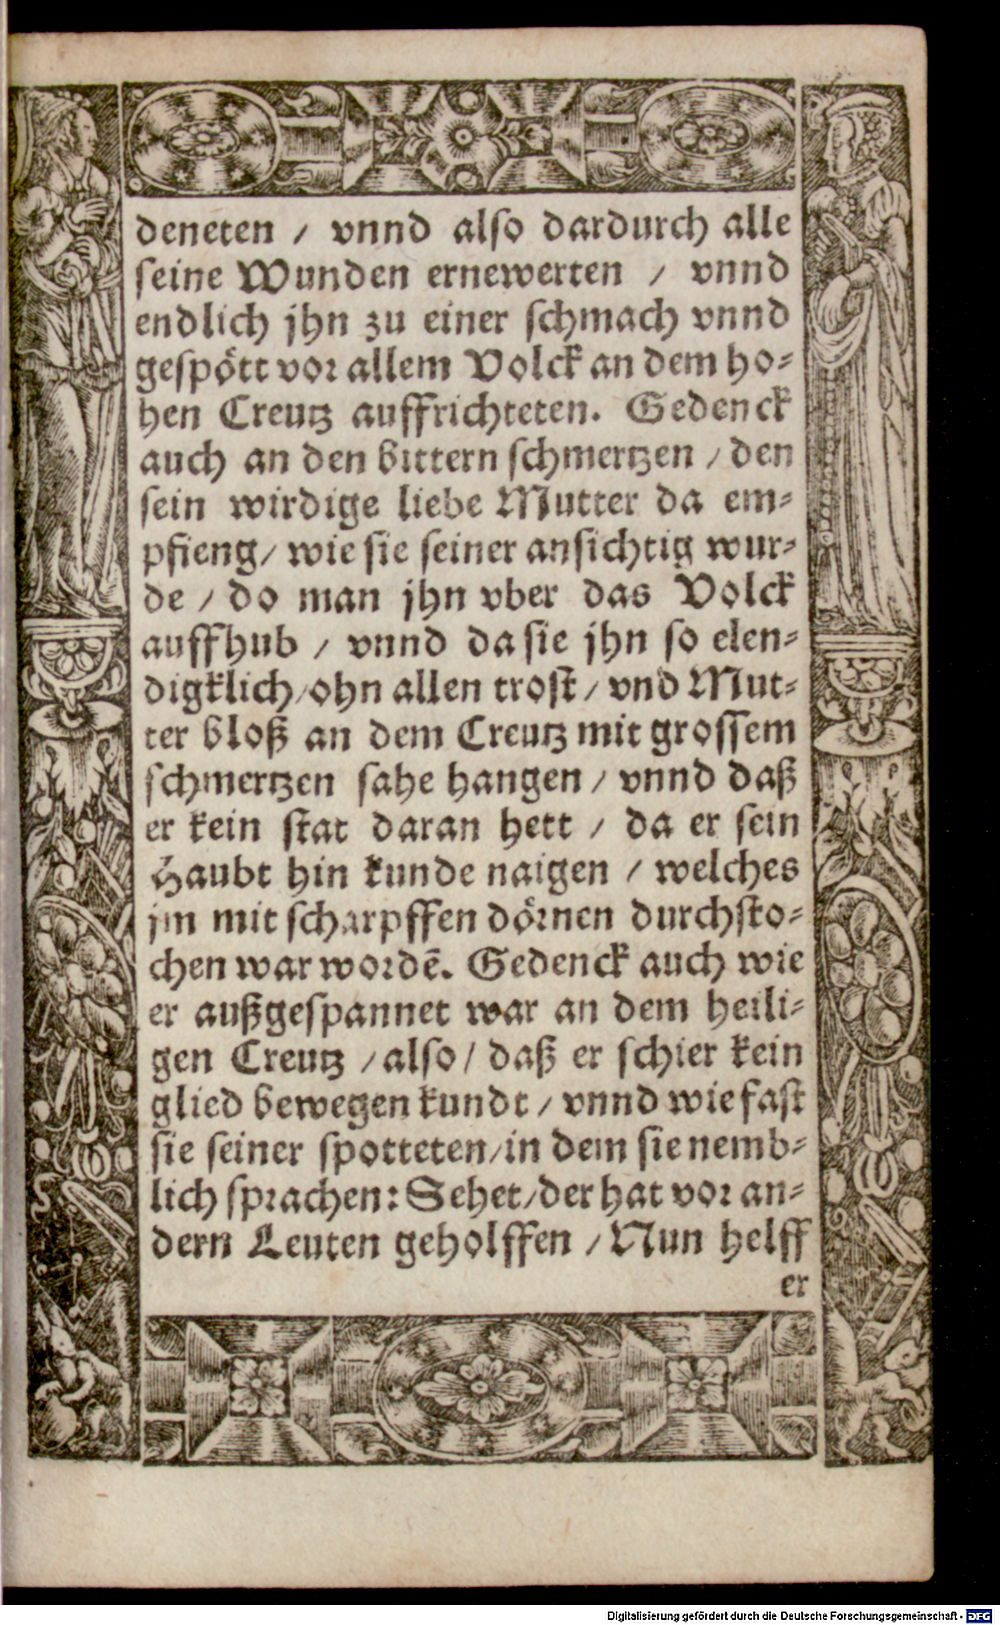 deneten / vnnd also dardurch alle
seine Wunden ernewerten / vnnd
endlich jhn zu einer schmach vnnd
gespött vor allem Volck an dem ho-
hen Creutz auffrichteten. Gedenck
auch an den bittern schmertzen / den
sein wirdige liebe Mutter da em-
pfieng / wie sie seiner ansichtig wur-
de / do man jhn vber das Volck
auffhub / vnnd da sie jhn so elen-
digklich / ohn allen trost / vnd Mut-
ter bloß an dem Creutz mit grossem
schmertzen sahe hangen / vnnd daß
er kein stat daran hett / da er sein
Haubt hin kunde naigen / welches
jm mit scharpffen dörnen durchsto-
chen war wordē. Gedenck auch wie
er außgespannet war an dem heili-
gen Creutz / also / daß er schier kein
glied bewegen kundt / vnnd wie fast
sie seiner spotteten / in dem sie nemb-
lich sprachen: Sehet / der hat vor an-
dern Leuten geholffen / Nun helff
er
Digitalisierung gefördert durch die Deutsche Forschungsgemeinschaft - DFG